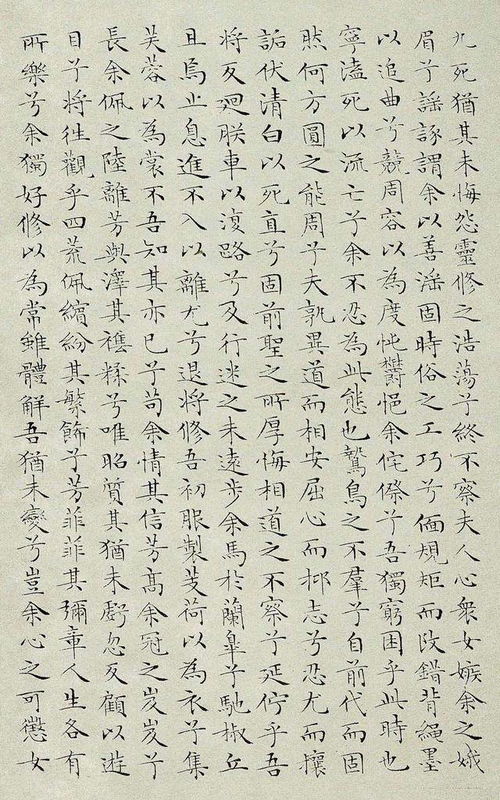 九死猶其未悔怨靈修之浩蕩兮終不察夫人心衆女嫉余之娥
眉兮謡諑謂余以善淫固時俗之工巧兮偭規矩而改錯背繩墨
以追曲兮競周容以為度忳鬱悒余侘傺兮吾獨窮困乎此時也
寧溘死以流亡兮余不忍為此態也鷙鳥之不羣兮自前代而固
然何方圓之能周兮夫孰異道而相安屈心而抑志兮忍尤而攘
詬伏清白以死直兮固前聖之所厚悔相道之不察兮延佇乎吾
將反廻朕車以復路兮及行迷之未遠步余馬於蘭皋兮馳椒丘
且焉止息進不入以離尤兮退將修吾初服製芰荷以為衣兮集
芙蓉以為裳不吾知其亦已兮苟余情其信芳高余冠之岌岌兮
長余佩之陸離芳與澤其襍糅兮唯昭質其猶未虧忽反顧以遊
目兮將往觀乎四荒佩繽紛其繁飾兮芳菲菲其彌章人生各有
所樂兮余獨好修以為常雖體解吾猶未變兮豈余心之可懲女